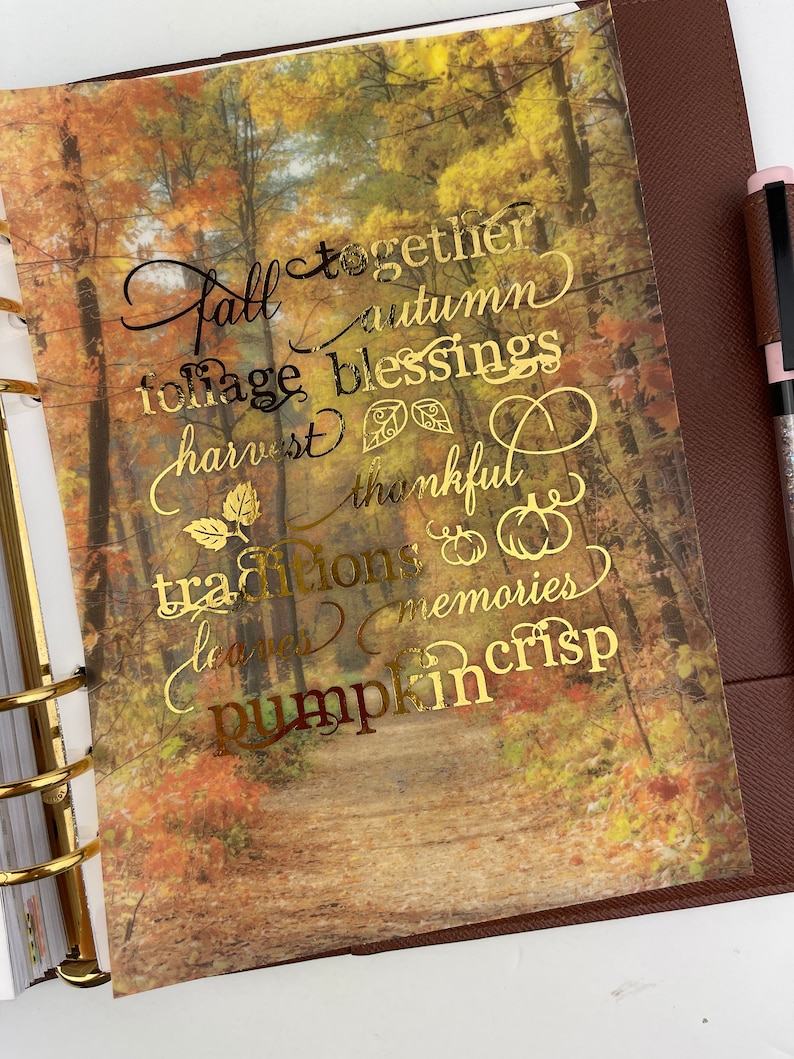 fall together
autumn
foliage blessings
harvest
thankful
traditions
leaves memories
pumpkin crisp